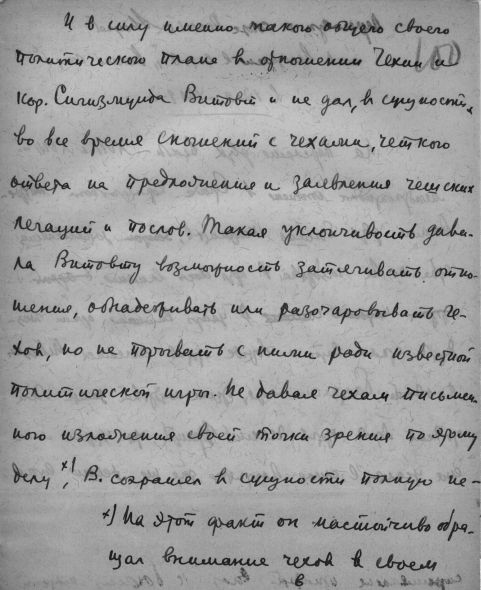 И в силу именно такого общего своего
политического плана в отношении Чехии и
кор. Сигизмунда Витовт и не дал, в сущности,
во все время сношений с чехами, четкого
ответа на предложения и заявления чешских
легаций и послов. Такая уклончивость дава-
ла Витовту возможность затягивать отно-
шения, обнадеживать или разочаровывать че-
хов, но не порывать с ними ради известной
политической игры. Не давая чехам письмен-
ного изложения своей точки зрения по этому
делу x), В. сохранял в сущности полную не-
x) На этот факт он настойчиво обра-
щал внимание чехов в своем